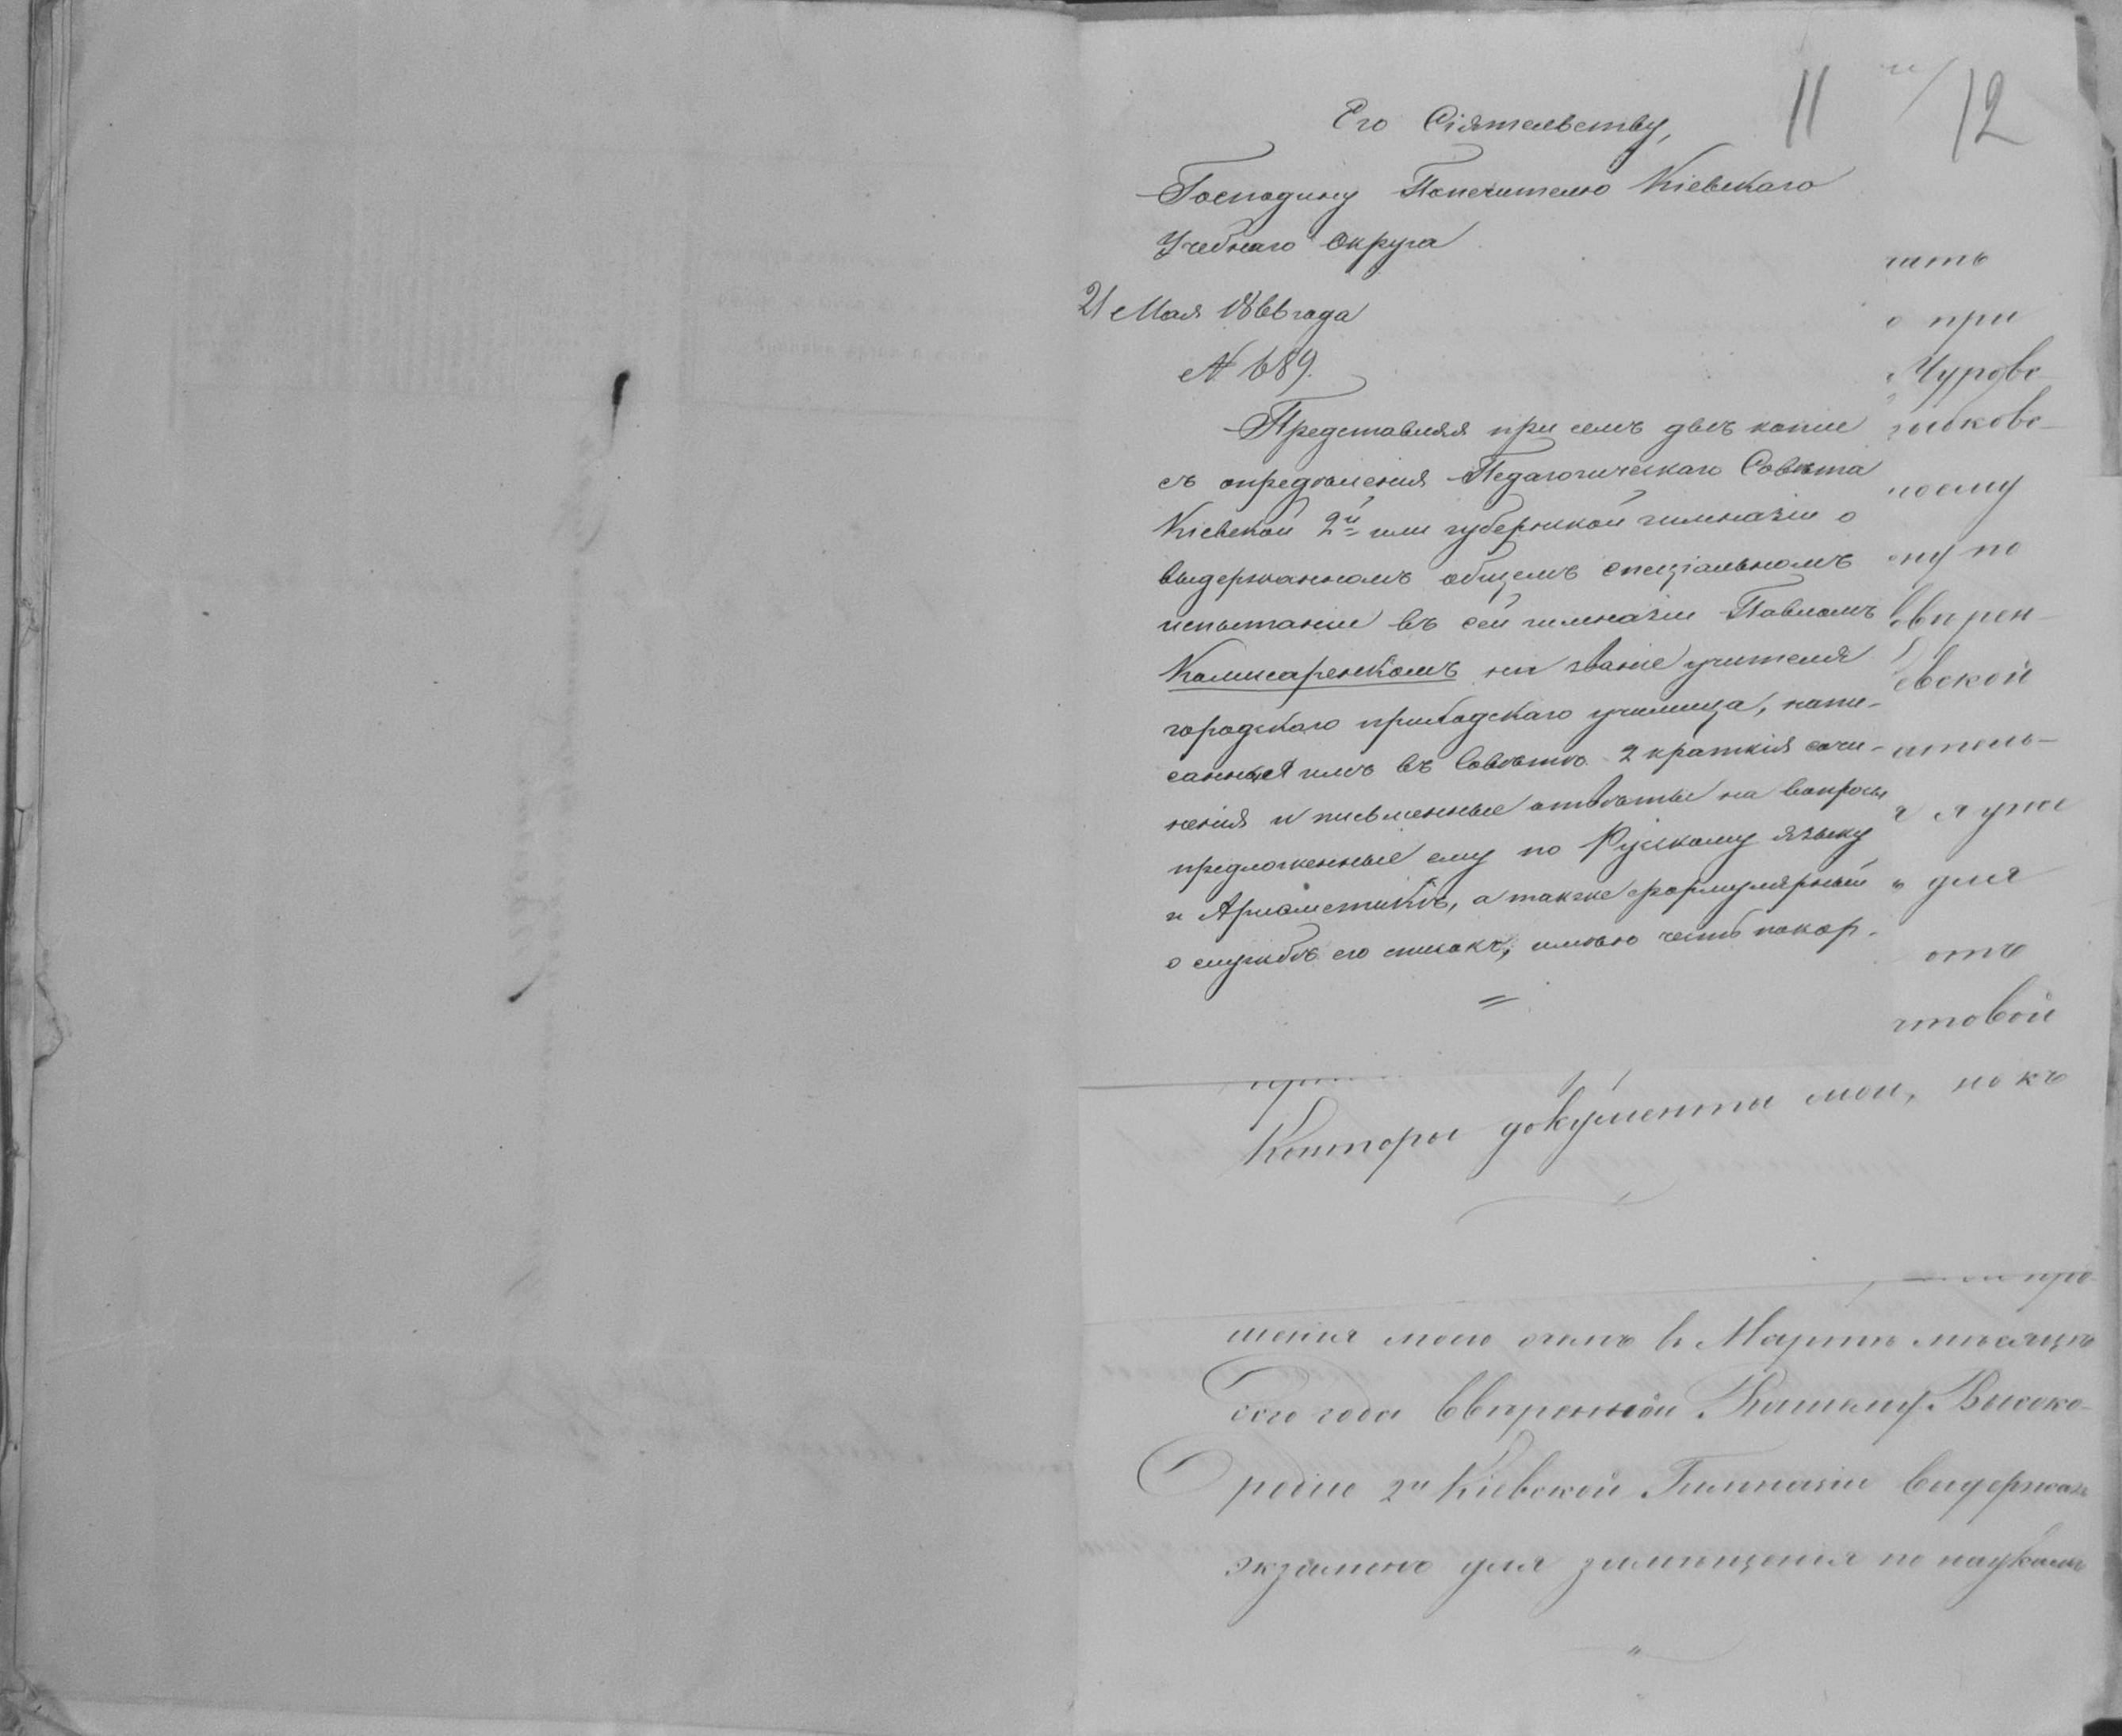 11 12
Его Сіятельству,
Господину Попечителю Кіевскаго
Учебнаго Округа
21 Мая 1866 года
№ 689.
Представляя при семъ двѣ копіи
съ опредѣленія Педагогическаго Совѣта
Кіевской 2й или губернской гимназіи о
выдержанномъ общемъ спеціальномъ
испытаніи въ сей гимназіи Павломъ
Комисаренкомъ на званіе учителя
городскаго приходскаго училища, напи-
санныя имъ въ Совѣтѣ 2 краткія сочи-
ненія и письменные отвѣты на вопросы
предложенные ему по Рускому языку
и Ариѳметикѣ, а также формулярный
о службѣ его списокъ, имѣю честь покор-
=
чить
о при
ному
ону по
ввѣрен-
евской
атель-
для
отъ
нтовой
Конторы документы мои, но къ
шенія моего
сего года ввѣренной Вашему Высоко-
родію 2й Кіевской Гимназіи выдержалъ
экзаменъ для замѣщенія по наукамъ